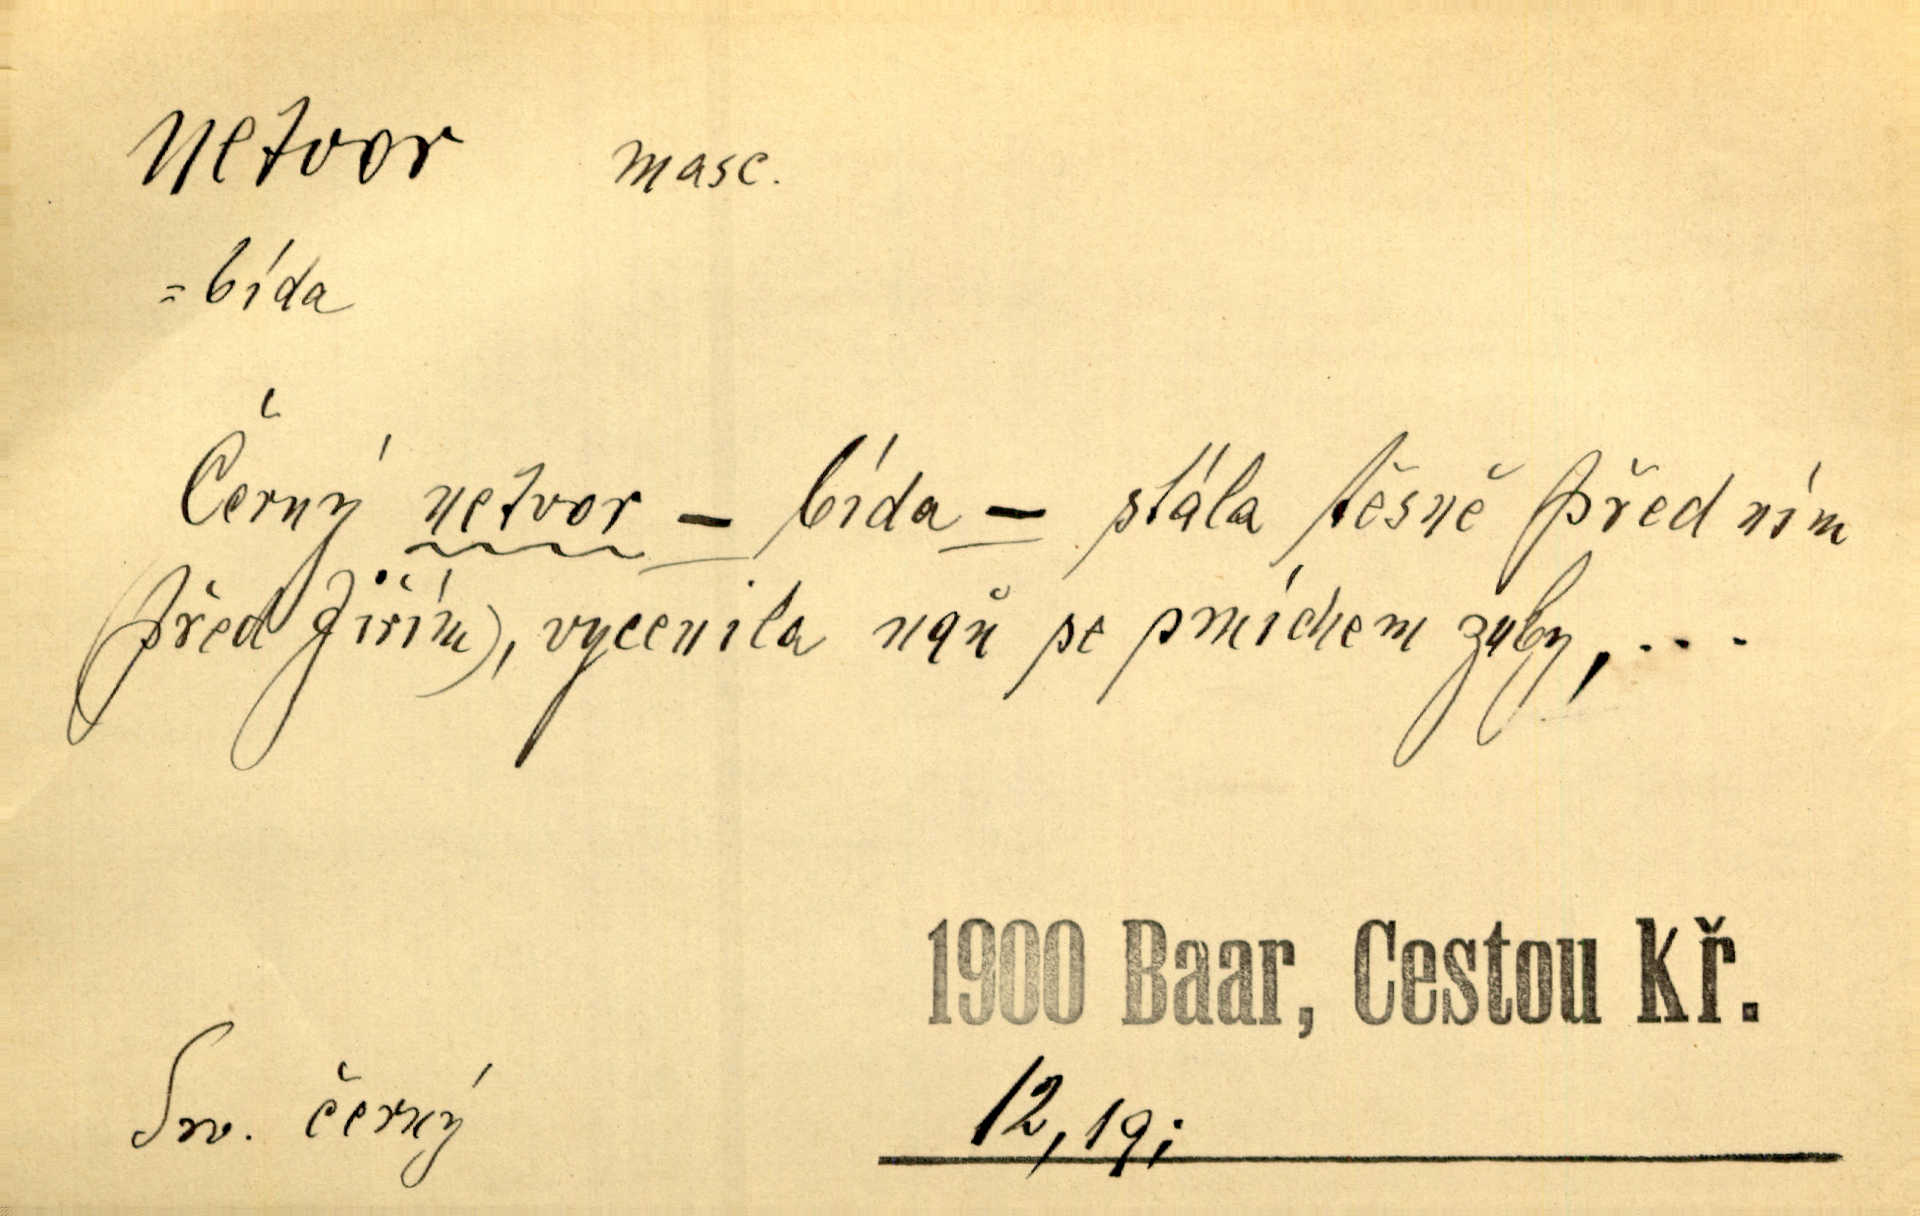 netvor masc.
= bída
Černý netvor – bída – stála těsně před ním
(před Jiřím), vycenila naň se smíchem zuby, ...
1900 Baar, Cestou Kř.
Srv. černý
12, 19;